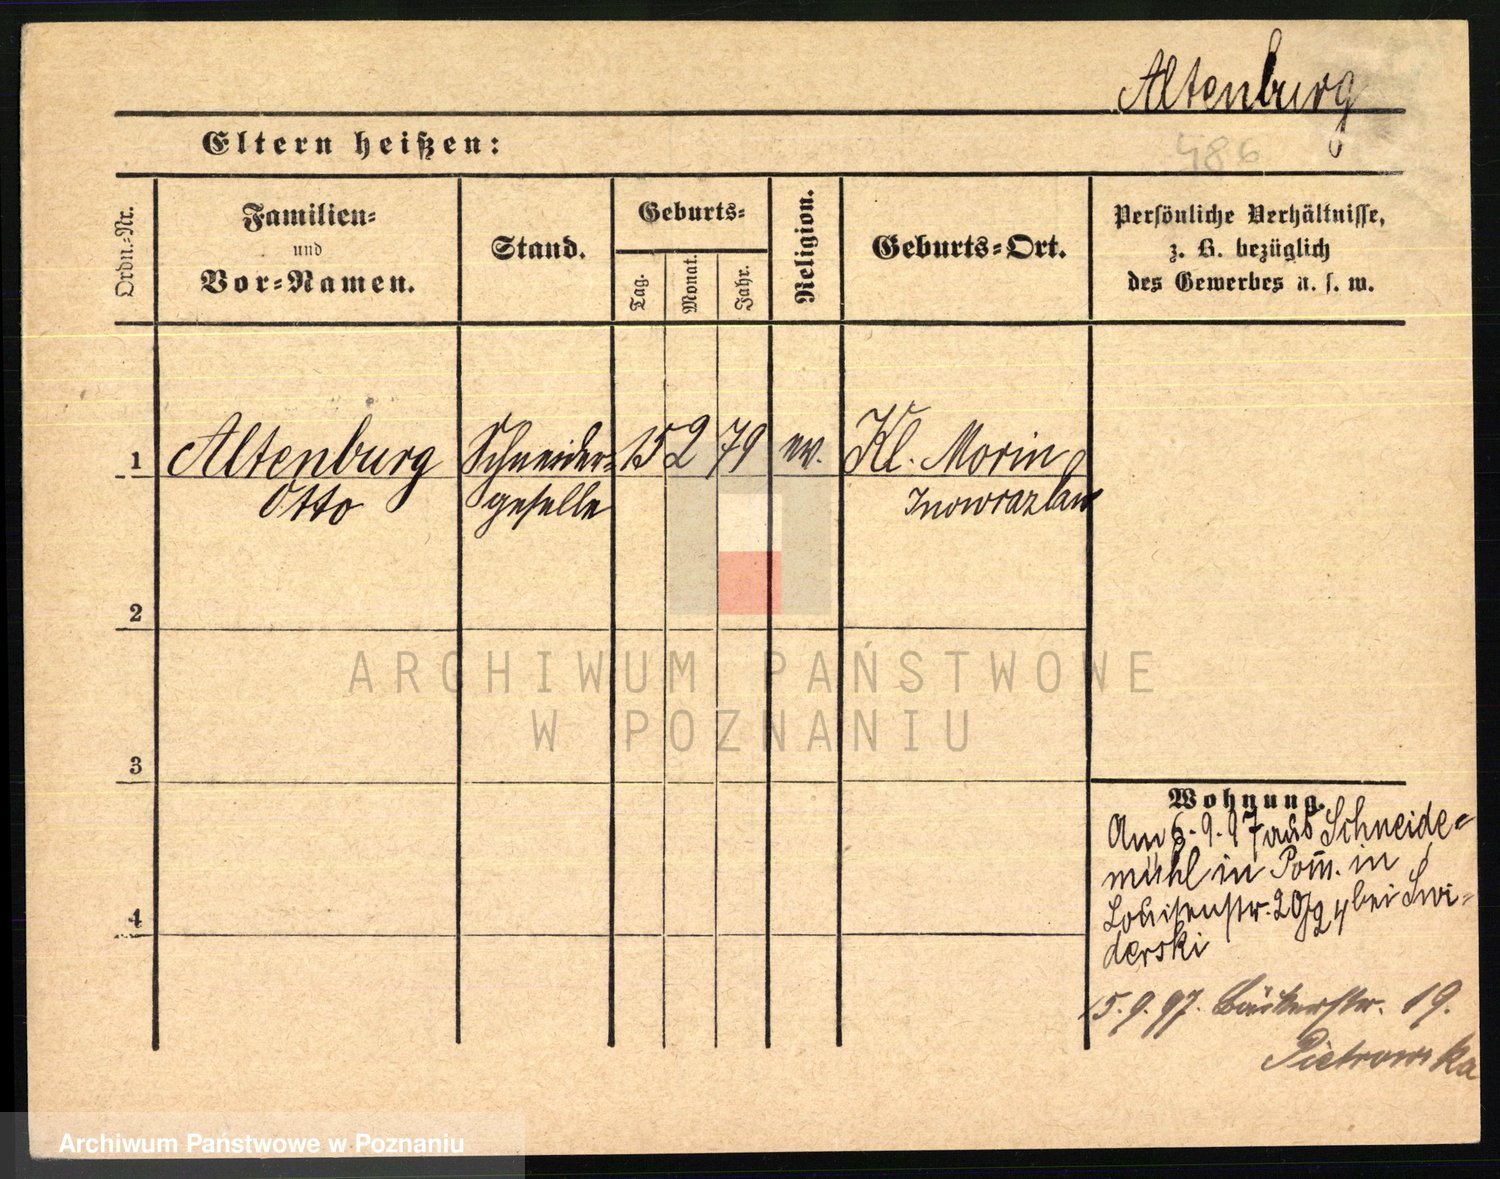 Altenburg
486
Eltern heißen:
Ordn.-Nr.
Familien-
und
Vor-Namen.
Stand.
Geburts-
Tag.
Monat.
Jahr.
Religion.
Geburts-Ort.
Persönliche Verhältnisse,
z. B. bezüglich
des Gewerbes u. s. w.
1 Altenburg Schneider- 15 2 79 ev. Kl. Morin
Otto geselle Inowrazlaw
2
3
4
ARCHIWUM PAŃSTWOWE
W POZNANIU
Wohnung.
Am 6.9.97 aus Schneide-
mühl in Pom. in
Louisenstr. 20/24 bei Swi-
derski
15.9.97. Bäckerstr. 19.
Pietrowska
Archiwum Państwowe w Poznaniu